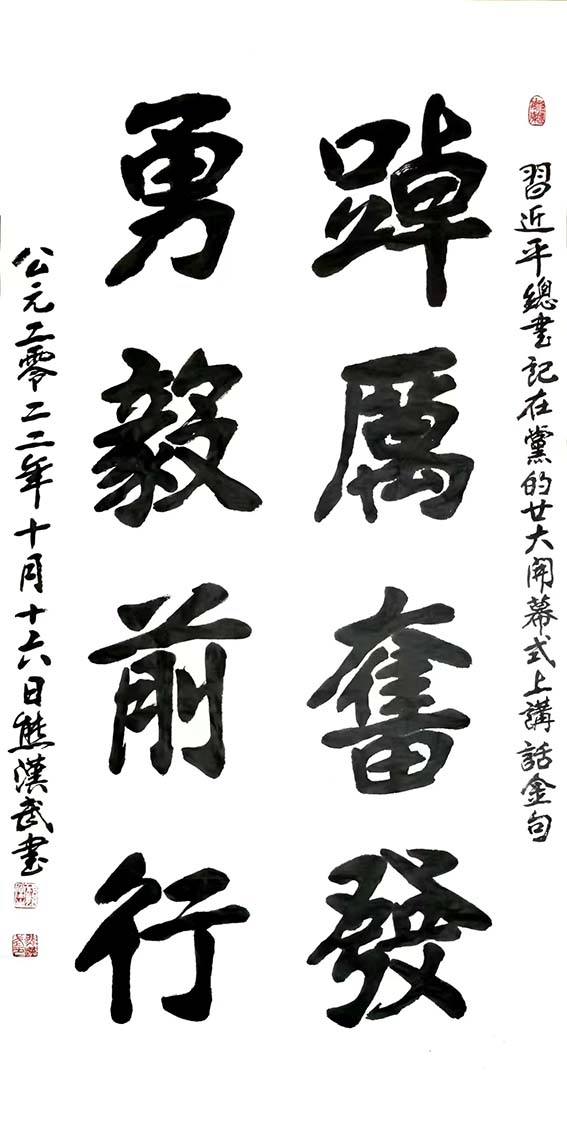 習近平總書記在黨的廿大開幕式上講話金句
踔厲奮發
勇毅前行
公元二零二二年十月十六日熊漢武書